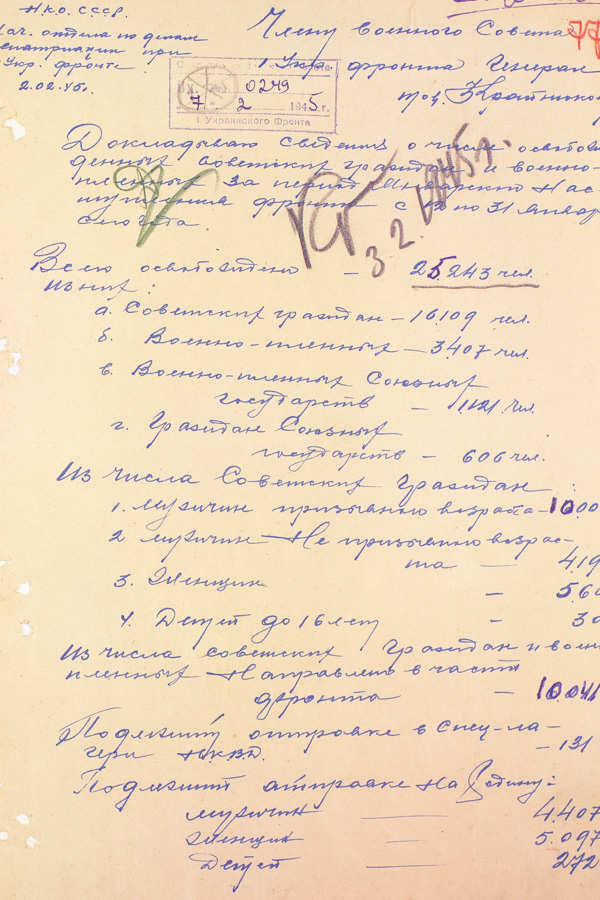 НКО СССР.
Нач. отдела по делам
репатриации при
Укр. фронте
2.02.45г.
Члену военного Совета
1 Укр фронта Генерал
тов. Крайнюко
77
0249
7 2 1945г.
1 Украинского Фронта
Докладываю сведения о числе освобож
денных советских граждан и военно-
пленных за период Январского Нас-
тупления фронта с 12 по 31 Январ
сего
3.2.
Всего освобождено — 25243 чел.
из них:
а. Советских граждан — 16.109 чел.
б. Военно-пленных — 3.407 чел.
в. Военно-пленных Союзных
государств — 1.121 чел.
г. Граждан Союзных
государств — 606 чел.
Из числа Советских Граждан
1. мужчин призывного возраста — 10.00
2 мужчин Не призывного возрас-
та — 419
3. Женщин — 5.6
4. Детей до 16 лет — 3
Из числа советских Граждан и воен
пленных Направлено в части
фронта — 10.041
Подлежит отправке в спец-ла-
геря НКВД. — 131
Подлежит отправке На Родину:
мужчин — 4.407
Женщин — 5.097
Детей — 272